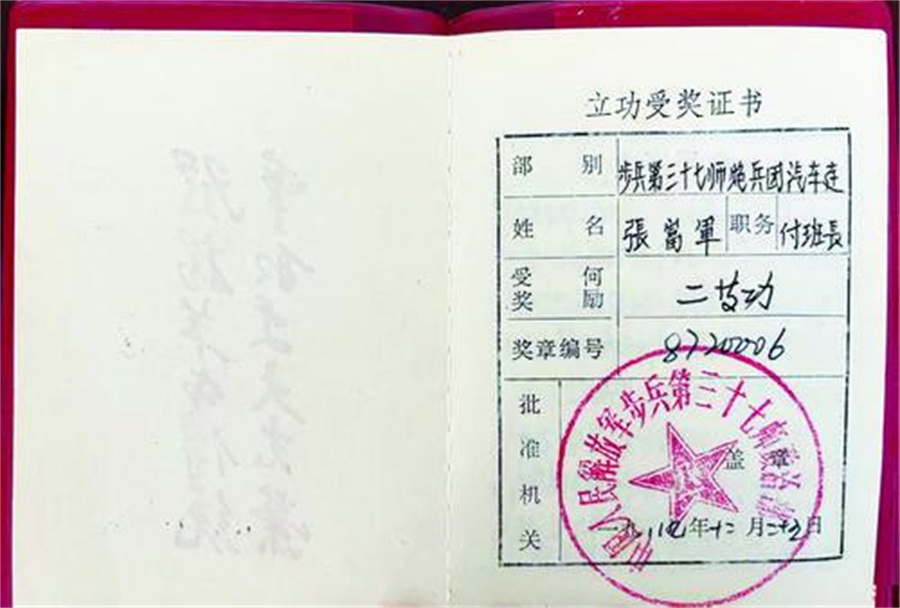 立功受奖证书
部别 步兵第三十七师炮兵团汽车连
姓名 張富軍 职务 付班長
受何奖励 二等功
奖章编号 8720006
批准机关
中国人民解放军步兵第三十七师政治部
盖章
年十二月二十五日